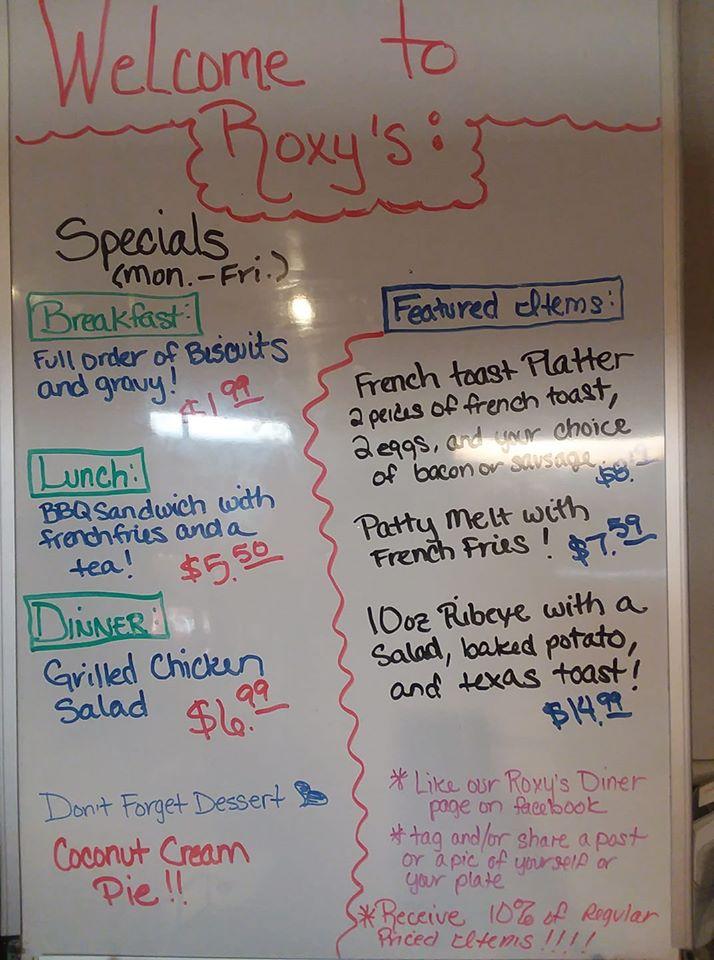 Welcome to
Roxy's:
Specials
(Mon.-Fri.)
Breakfast:
Full order of Biscuits
and gravy!
1.99
Lunch:
BBQ Sandwich with
french fries and a
tea!
$5.50
DINNER:
Grilled Chicken
Salad
$6.99
Don't Forget Dessert
Coconut Cream
Pie!!
Featured Items:
French toast Platter
2 peices of french toast,
2 eggs, and your choice
of bacon or sausage.
$8.
Patty Melt with
French Fries!
$7.59
10oz Ribeye with a
Salad, baked potato,
and texas toast!
$14.99
* Like our Roxy's Diner
page on facebook
* tag and/or share a post
or a pic of yourself or
your plate
* Receive 10% of Regular
Priced Items!!!!